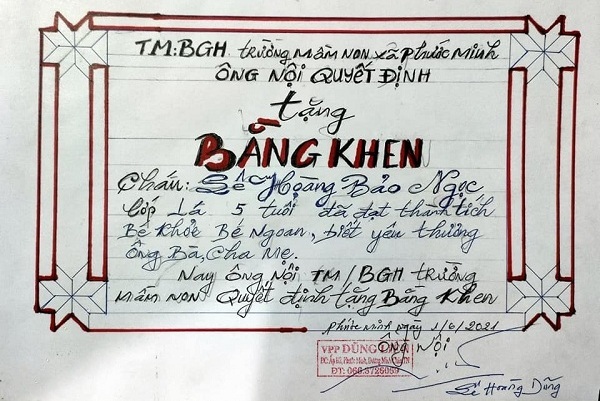 TM:BGH trường mầm non xã Phước Minh
ÔNG NỘI QUYẾT ĐỊNH
tặng
BẰNG KHEN
Cháu: Lê Hoàng Bảo Ngọc
Lớp Lá 5 tuổi đã đạt thành tích
Bé Khỏe Bé Ngoan, biết yêu thương
Ông Bà, Cha Mẹ.
Nay Ông Nội TM/BGH TRƯỜNG
mầm NON Quyết định tặng Bằng Khen
Phước Minh ngày 1/6/2021
Ông Nội
VPP DŨNG
ĐT: 066.3726065
Lê Hoàng Dũng